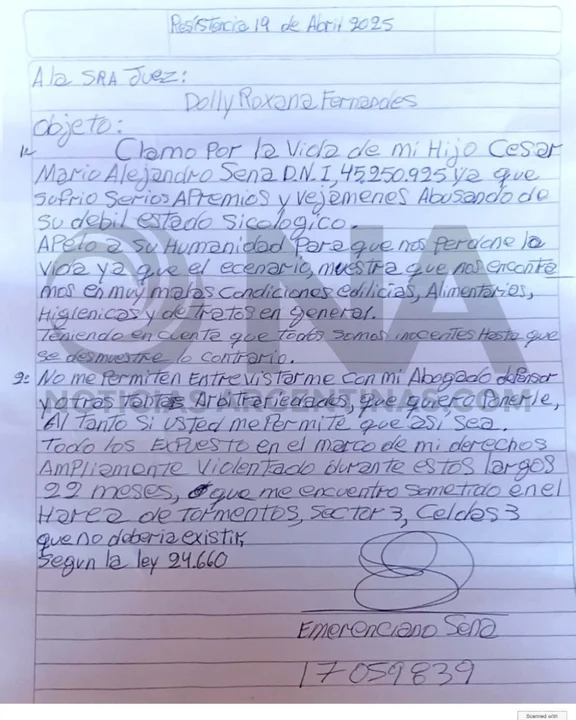 Resistencia 19 de Abril 2025
A la SRA Juez:
Dolly Roxana Fernandes
Objeto:
1: Clamo Por la Vida de mi Hijo Cesar
Mario Alejandro Sena D.N.I, 45.250.925 ya que
sufrio Serios APremios y Vejámenes Abusando de
su debil estado Sicologico.
APelo a su Humanidad Para que nos Perdone la
Vida ya que el ecenario, muestra que nos encontra
mos en muy malas Condiciones edilicias, Alimentarias,
Higienicas y de Tratos en general.
Teniendo en cuenta que todos somos inocentes Hasta que
se desmuestre lo contrario.
2: No me Permiten Entrevistarme con mi Abogado defensor
y otras tantas Arbitrariedades, que quiero Ponerle,
Al Tanto Si usted me Permite que asi sea.
Todo los EXPuesto en el marco de mi derechos
AmPliamente Violentado durante estos largos
22 meses, que me encuentro sometido en el
Harea de Tormentos, Sector 3, Celdas 3
que no doberia existir,
Segun la ley 24.660
Emerenciano Sena
17059839
NA
NOTICIAS ARGENTINAS.COM
Scanned with